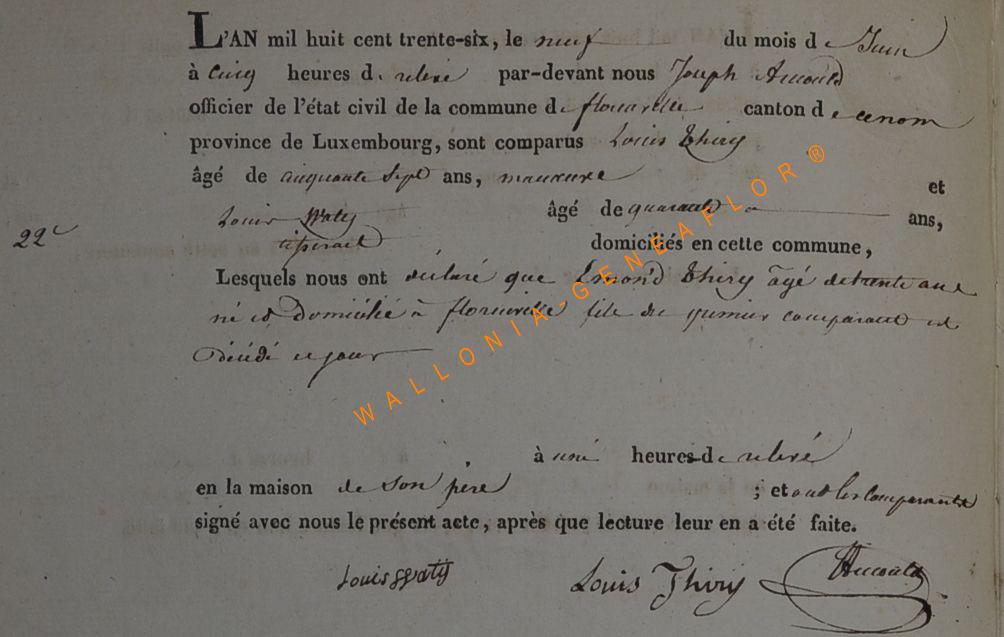 L'AN mil huit cent trente-six, le neuf du mois de Juin
à cinq heures de relevé par-devant nous Joseph Arnould
officier de l'état civil de la commune de florenville canton de
province de Luxembourg, sont comparus Louis Thiry
âgé de cinquante sept ans, manœuvre et
Louis Watÿ âgé de quarante ans,
22e
tisserand domiciliés en cette commune,
Lesquels nous ont déclaré que Emond Thiry âgé de trente ans
né et domicilié à florenville fils du premier comparant est
décédé ce jour
à une heures de relevé
en la maison de son père ; et ont les comparants
signé avec nous le présent acte, après que lecture leur en a été faite.
Louis Watÿ Louis Thiry Arnould
WALLONIA-GENEAFLOR ®